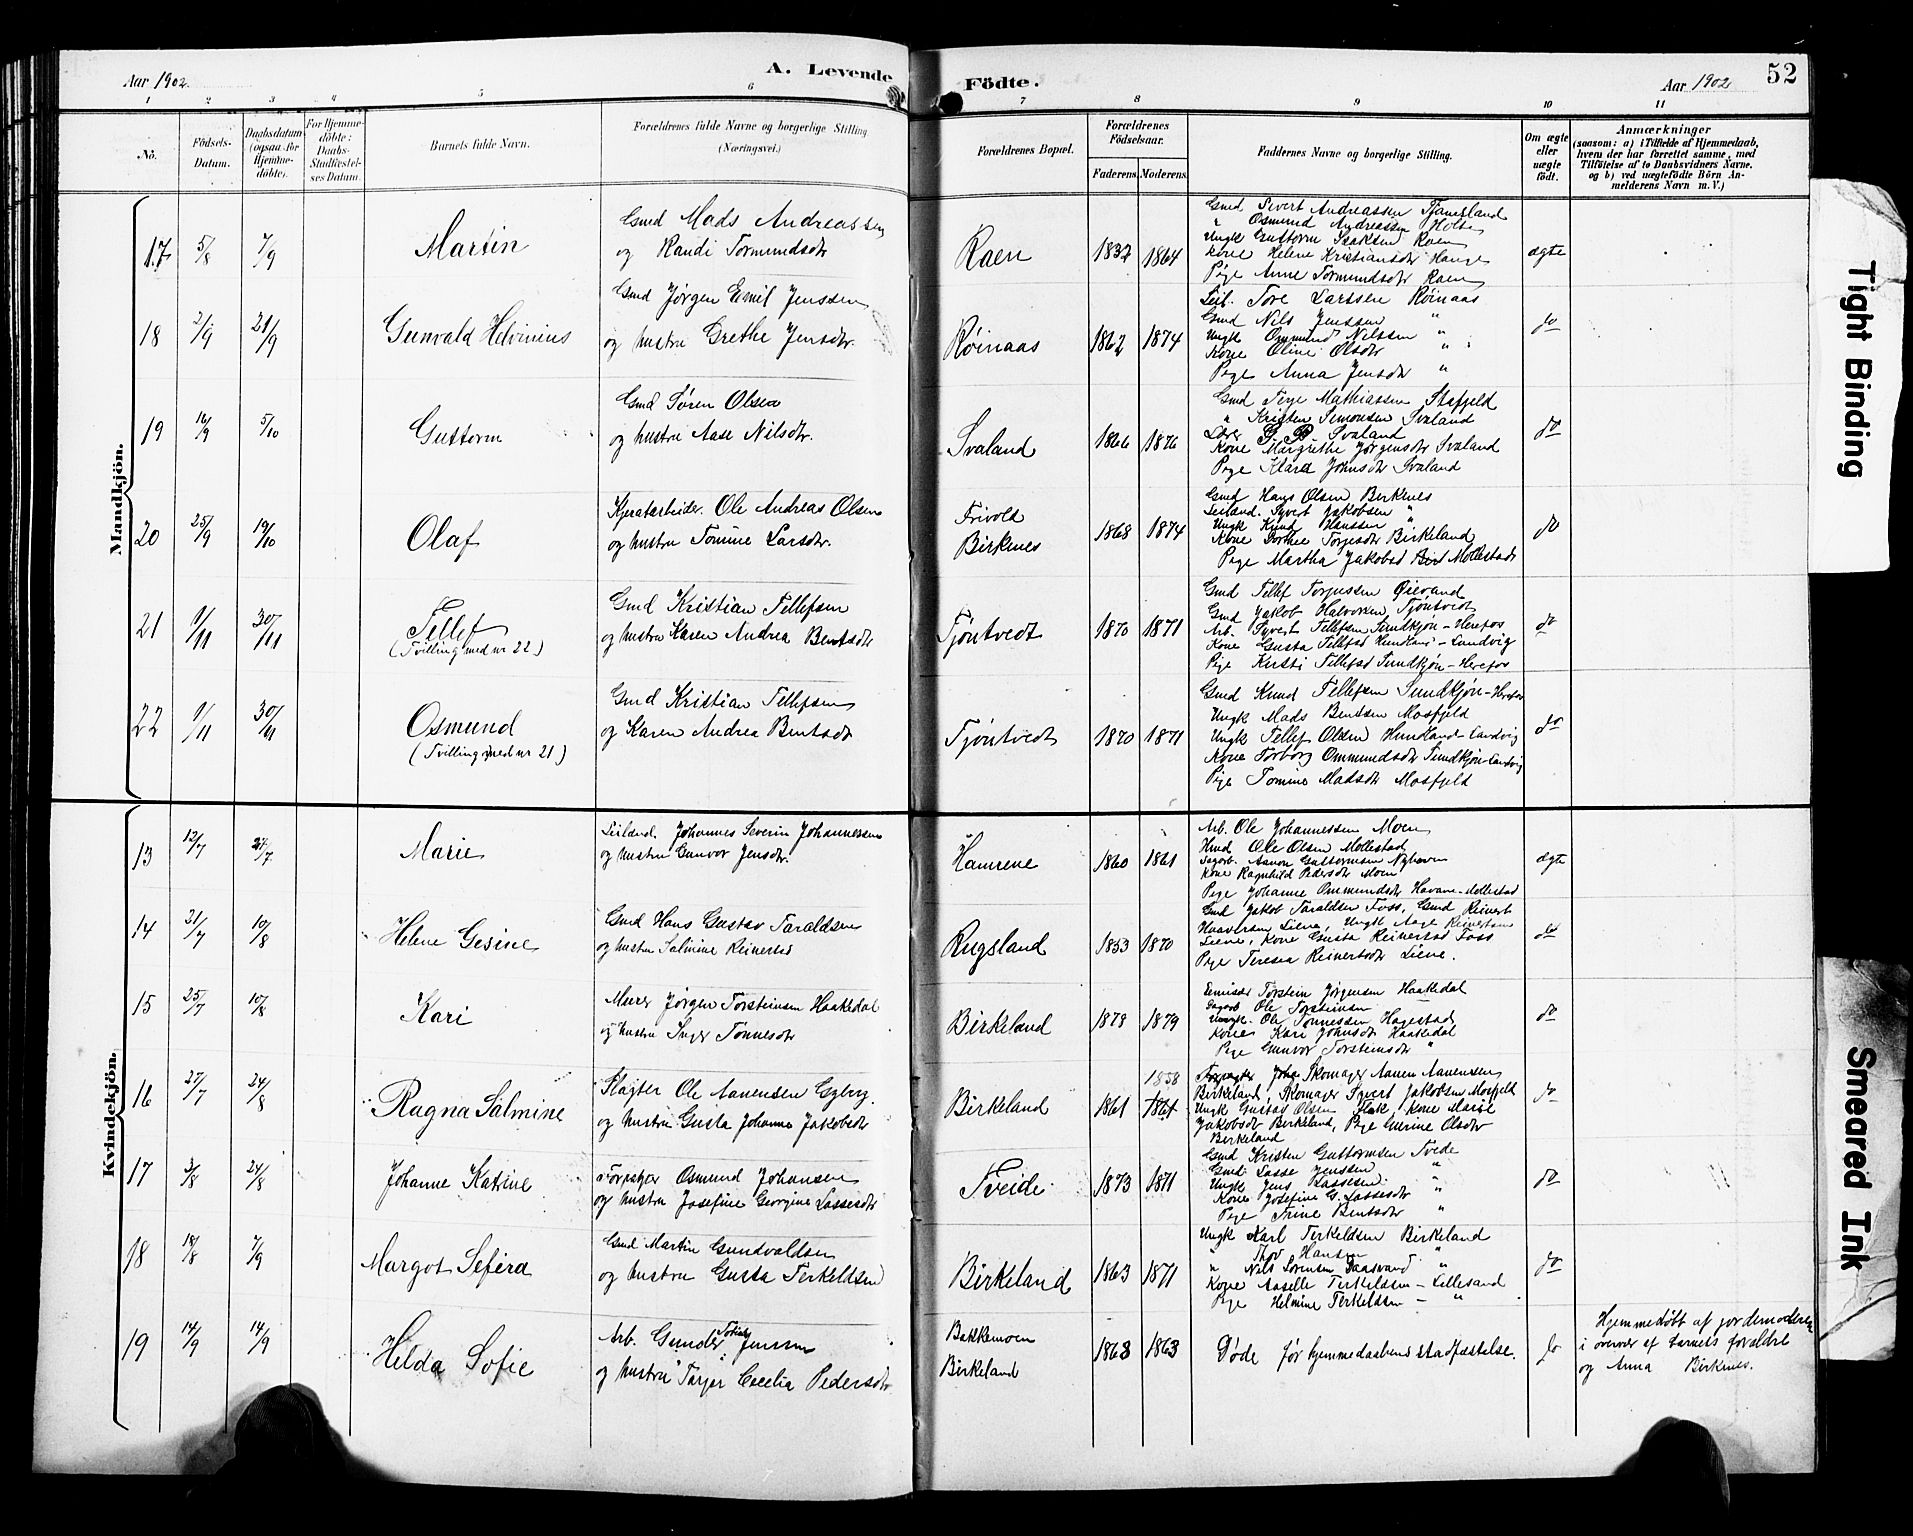 Aar 1902
A. Levende Födte.
Aar 1902
52
1 2 3 4 5 6 7 8 9 10 11
No.
Födsels-Datum.
Daabsdatum (ogsaa for Hjemmedöbte).
For Hjemmedöbte: Daabs-Stadfæstelses Datum.
Barnets fulde Navn.
Forældrenes fulde Navne og borgerlige Stilling (Næringsvei.)
Forældrenes Bopæl.
Forældrenes Födselsaar.
Faderens. Moderens.
Faddernes Navne og borgerlige Stilling.
Om ægte eller uægte födt.
Anmærkninger
(saasom: a) i Tilfælde af Hjemmedaab, hvem der har forrettet samme, med Tilföielse af to Daabsvidners Navne, og b) ved uægtefödte Börn Anmelderens Navn m. V.)
Mandkjön.
17 5/8 7/9 Martin
Gmd Mads Andreassen
og Randi Tormundsdtr
Raen 1832 1864
Gmd Sivert Andreassen Tjaneland
" Osmund Andreassen Holte
Ungk Guttorm Isaksen Raen
Kone Helene Kristiansdtr Hauge
Pige Anne Tormundsdtr Raen
ægte
18 2/9 21/9 Gunvald Helvinius
Gmd Jørgen Emil Jenssen
og hustru Grethe Jensdtr.
Røinaas 1862 1874
Leil. Tore Larssen Røinaas
Gmd Nils Jenssen "
Ungk Ommund Nilssen "
Kone Oline Olsdtr "
Pige Anna Jensdtr "
do
19 16/9 5/10 Guttorm
Gmd Søren Olsen
og hustru Aase Nilsdtr.
Svaland 1866 1876
Gmd Terje Mathiassen Stafjeld
" Kristen Simonsen Svaland
Lærer G. B. Svaland
Kone Margrethe Jørgensdtr Svaland
Pige Klara Johnsdtr Svaland
do
20 25/9 19/10 Olaf
Kjeratarbeider. Ole Andreas Olsen
og hustru Tomine Larsdtr.
Frivold
Birkenes
1868 1874
Gmd Hans Olsen Birkenes
Leiland. Syvert Jakobsen "
Ungk Knud Hanssen "
Kone Dorthe Torjesdtr Birkeland
Pige Martha Jakobsd Mollestad
do
21 9/11 30/11 Tellef
(Tvilling med nr 22)
Gmd Kristian Tellefsen
og hustru Karen Andrea Bentsdtr
Tjøntvedt 1870 1871
Gmd Tellef Torjussen Øievand
Gmd Jakob Halvorsen Tjøntvedt
Arb. Syvert Tellefsen Sundkjøn-Herefos
Kone Gusta Tellefsd Hundland-Landvig
Pige Kirsti Tellefsd Sundkjøn-Herefos
do
22 9/11 30/11 Osmund
(Tvilling med nr 21)
Gmd Kristian Tellefsen
og Karen Andrea Bentsdtr
Tjøntvedt 1870 1871
Gmd Knud Tellefsen Sundkjøn-Herefos
Ungk Mads Bentsen Mosfjeld
Ungk Tellef Olsen Hundland-Landvig
Kone Torborg Ommundsdtr Sundkjøn-Landvig
Pige Tomine Madsdtr Mosfjeld
do
Kvindekjön.
13 12/7 27/7 Marie
Leilænd. Johannes Severin Johannessen
og hustru Gunvor Jensdtr.
Hamrene 1860 1861
Arb. Ole Johannessen Moen
Hmd Ole Olsen Mollestad
Sagarb. Aanon Guttormsen Nyhaven
Kone Ragnhild Pedersdtr Moen
Pige Johanne Ommundsdtr Havane-Mollestad
ægte
14 21/7 10/8 Helene Gesine
Gmd Hans Gustav Taraldsen
og hustru Salmine Reinertsd
Rugsland 1853 1870
Gmd Jakob Taraldsen Foss, Gmd Reinert
Haaversen Liene, Ungk Aage Reinertsen
Liene, Kone Gusta Reinertsd Foss
Pige Teresia Reinertsdtr Liene.
do
15 25/7 10/8 Kari
Murer Jørgen Torsteinsen Haakedal
og hustru Inger Tønnesdtr
Birkeland 1878 1879
Emissær Torstein Jørgensen Haakedal
Sagarb Ole Torsteinsen
Ungk. Ole Tønnessen Hagestad
Kone Kari Johnsdtr Haakedal
Pige Gunvor Torsteinsdtr "
do
16 27/7 24/8 Ragna Salmine
Slagter Ole Aanensen Gyberg.
og hustru Gusta Johanne Jakobsdtr
Birkeland 1861 1858 1861
Skomager Aanen Aanensen
Birkeland, Skomager Syvert Jakobsen Mosfjeld
Ungk Gustav Olsen Flak, kone Marie
Jakobsdtr Birkeland, Pige Gurine Olsdtr
Birkeland
do
17 3/8 24/8 Johanne Katrine
Forpagter Osmund Johansen
og hustru Josefine Georgine Lassesdtr
Tveide 1873 1871
Gmd Kristen Guttormsen Tvede
Gmd Lasse Jenssen "
Ungk Jens Lassesen "
Kone Josefine G. Lassesdtr "
Pige Trine Bentsdtr "
do
18 18/8 7/9 Margot Sefira
Gmd Martin Gundvaldsen
og hustru Gusta Terkeldsen
Birkeland 1863 1871
Ungk Karl Terkeldsen Birkeland
" Thov Hansen "
" Nils Sørensen Saasvand "
Kone Aaselle Terkeldsen - Lillesand
Pige Helmine Terkeldsen - "
do
19 14/9 14/9 Hilda Sofie
Arb. Gunder Tobias Jenssen
og hustru Torjer Cecelia Pedersdtr
Bakkemoen
Birkeland
1863 1863
Døde før hjemmedaabens stadfæstelse.
do
Hjemmedøbt af jordemoderen
i overvær af barnets forældre
og Anna Birkenes.
Tight Binding
Smeared Ink